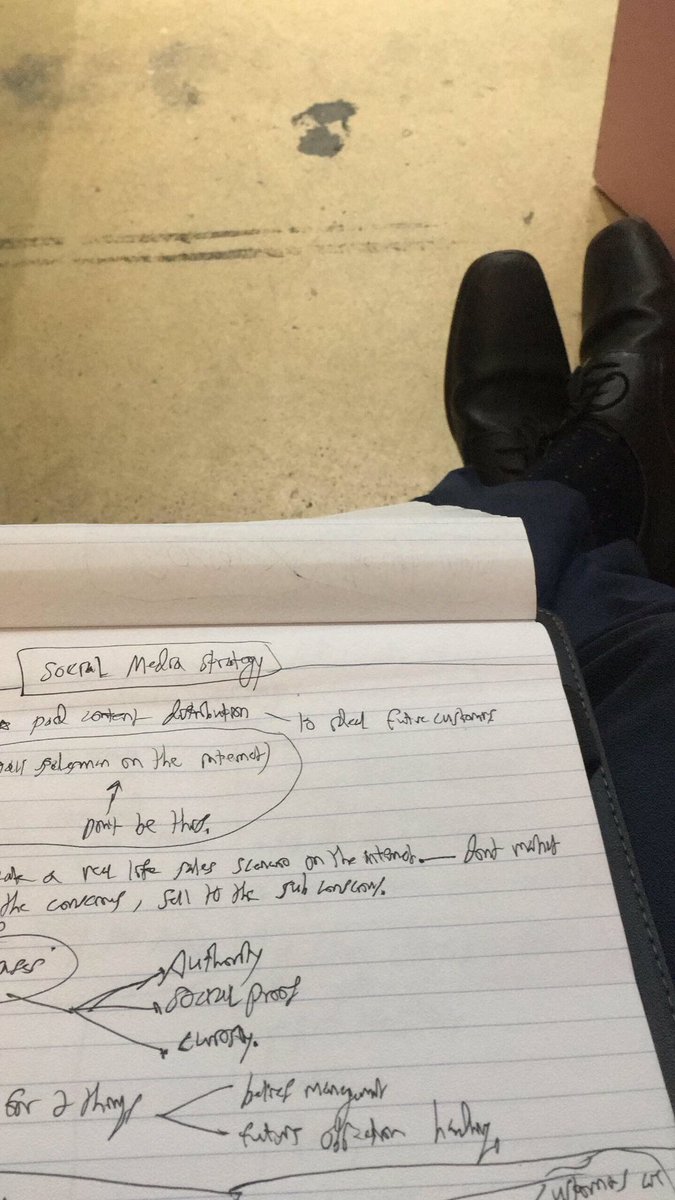 Social Media Strategy
content distribution – to future customers
salesman on the internet)
Don't be this.
a real life sales scenario on the internet. — Dont market
the conscious, sell to the sub conscious.
Authority
Social proof
Curiosity.
For 2 things
belief management
future objection handling,
customers we